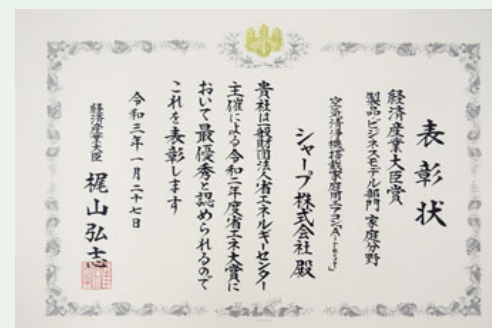 表彰状
経済産業大臣賞
製品・ビジネスモデル部門 家庭分野
空気清浄機搭載家庭用エアコン「Airest」
シャープ株式会社 殿
貴社は一般財団法人省エネルギーセンター
主催による令和二年度省エネ大賞に
おいて最優秀と認められるので
これを表彰します
令和三年一月二十七日
経済産業大臣 梶山弘志